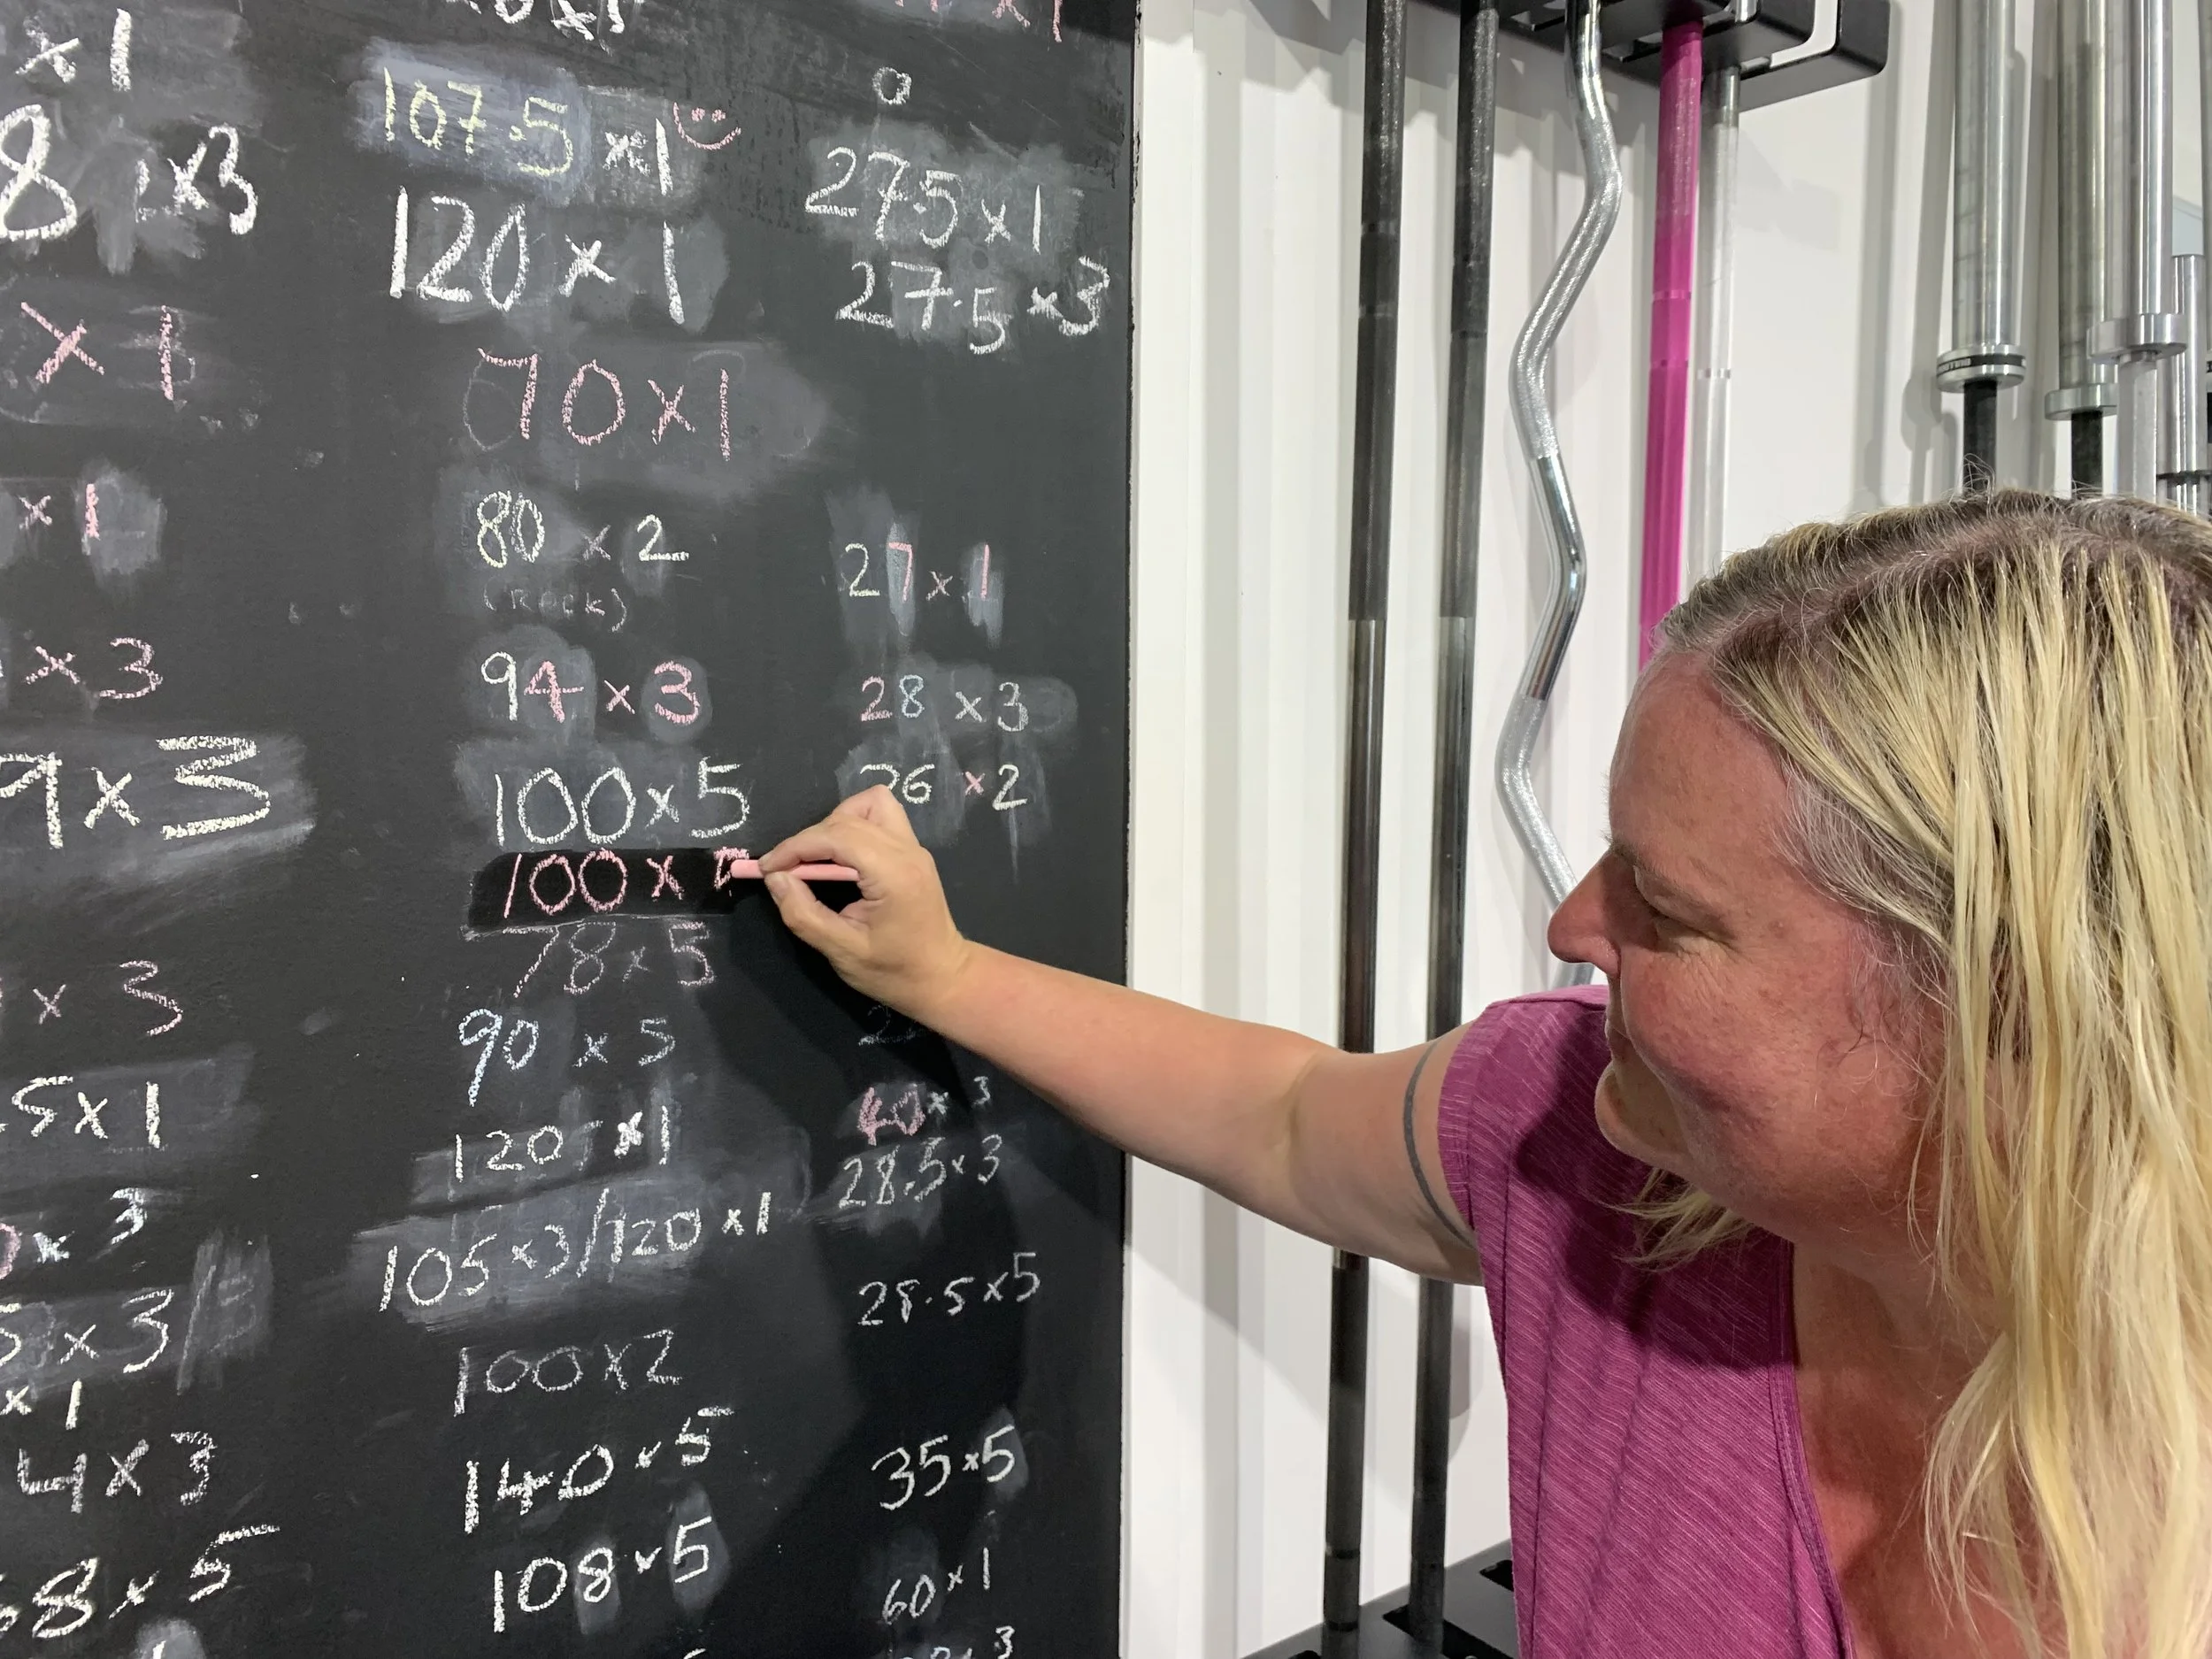 x 1
107.5 x 1
0
8 x3
120 x 1
27.5 x 1
27.5 x 3
x 1
70 x 1
x 1
80 x 2
27 x 1
(RACK)
x 3
94 x 3
28 x 3
9 x 3
100 x 5
26 x 2
100 x
78 x 5
x 3
90 x 5
5 x 1
120 x 1
40 x 3
28.5 x 3
x 3
105 x 3/120 x 1
28.5 x 5
5 x 3/
100 x 2
x 1
4 x 3
140 x 5
35 x 5
68 x 5
108 x 5
60 x 1